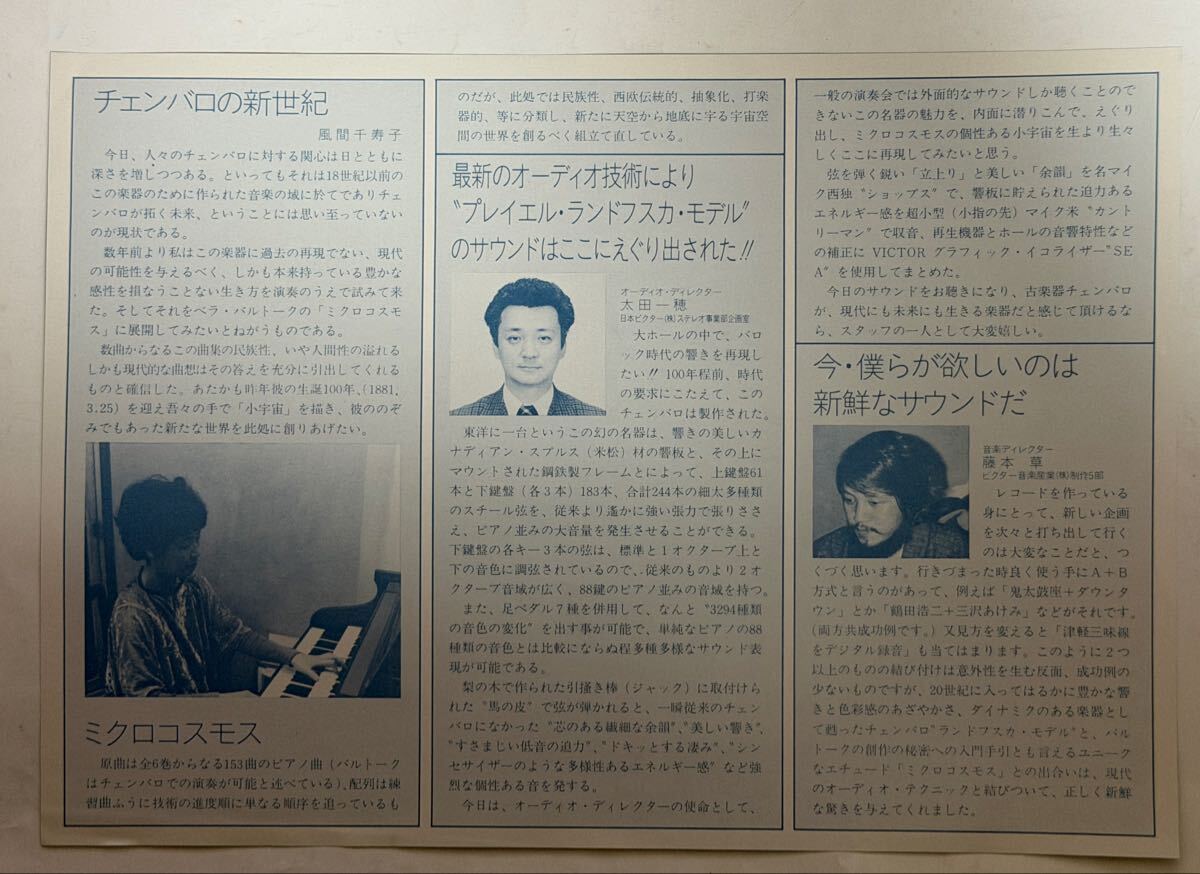 チェンバロの新世紀
風間千寿子
今日、人々のチェンバロに対する関心は日とともに
深さを増しつつある。といってもそれは18世紀以前の
この楽器のために作られた音楽の域に於てでありチェ
ンバロが拓く未来、ということには思い至っていない
のが現状である。
数年前より私はこの楽器に過去の再現でない、現代
の可能性を与えるべく、しかも本来持っている豊かな
感性を損なうことない生き方を演奏のうえで試みて来
た。そしてそれをベラ・バルトークの「ミクロコスモ
ス」に展開してみたいとねがうものである。
数曲からなるこの曲集の民族性、いや人間性の溢れる
しかも現代的な曲想はその答えを充分に引出してくれる
ものと確信した。あたかも昨年彼の生誕100年、(1881.
3.25）を迎え吾々の手で「小宇宙」を描き、彼ののぞ
みでもあった新たな世界を此処に創りあげたい。
ミクロコスモス
原曲は全6巻からなる153曲のピアノ曲（バルトーク
はチェンバロでの演奏が可能と述べている）、配列は練
習曲ふうに技術の進度順に単なる順序を追っているも
のだが、此処では民族性、西欧伝統的、抽象化、打楽
器的、等に分類し、新たに天空から地底に宇る宇宙空
間の世界を創るべく組立て直している。
最新のオーディオ技術により
〝プレイエル・ランドフスカ・モデル〟
のサウンドはここにえぐり出された!!
オーディオ・ディレクター
太田一穂
日本ビクター(株)ステレオ事業部企画室
大ホールの中で、バロ
ック時代の響きを再現し
たい!! 100年程前、時代
の要求にこたえて、この
チェンバロは製作された。
東洋に一台というこの幻の名器は、響きの美しいカ
ナディアン・スプルス（米松）材の響板と、その上に
マウントされた鋼鉄製フレームとによって、上鍵盤61
本と下鍵盤（各3本）183本、合計244本の細太多種類
のスチール弦を、従来より遙かに強い張力で張りささ
え、ピアノ並みの大音量を発生させることができる。
下鍵盤の各キー3本の弦は、標準と1オクターブ上と
下の音色に調弦されているので、従来のものより2オ
クターブ音域が広く、88鍵のピアノ並みの音域を持つ。
また、足ペダル7種を併用して、なんと〝3294種類
の音色の変化〟を出す事が可能で、単純なピアノの88
種類の音色とは比較にならぬ程多種多様なサウンド表
現が可能である。
梨の木で作られた引掻き棒（ジャック）に取付けら
れた〝馬の皮〟で弦が弾かれると、一瞬従来のチェン
バロになかった〝芯のある繊細な余韻〟、〝美しい響き〟、
〝すさまじい低音の迫力〟、〝ドキッとする凄み〟、〝シン
セサイザーのような多様性あるエネルギー感〟など強
烈な個性ある音を発する。
今日は、オーディオ・ディレクターの使命として、
一般の演奏会では外面的なサウンドしか聴くことので
きないこの名器の魅力を、内面に潜りこんで、えぐり
出し、ミクロコスモスの個性ある小宇宙を生より生々
しくここに再現してみたいと思う。
弦を弾く鋭い「立上り」と美しい「余韻」を名マイ
ク西独〝ショップス〟で、響板に貯えられた迫力ある
エネルギー感を超小型（小指の先）マイク米〝カント
リーマン〟で収音、再生機器とホールの音響特性など
の補正に VICTOR グラフィック・イコライザー〝SE
A〟を使用してまとめた。
今日のサウンドをお聴きになり、古楽器チェンバロ
が、現代にも未来にも生きる楽器だと感じて頂けるな
ら、スタッフの一人として大変嬉しい。
今・僕らが欲しいのは
新鮮なサウンドだ
音楽ディレクター
藤本 草
ビクター音楽産業(株)制作5部
レコードを作っている
身にとって、新しい企画
を次々と打ち出して行く
のは大変なことだと、つ
くづく思います。行きづまった時良く使う手にA＋B
方式と言うのがあって、例えば「鬼太鼓座＋ダウンタ
ウン」とか「鶴田浩二＋三沢あけみ」などがそれです。
(両方共成功例です。）又見方を変えると「津軽三味線
をデジタル録音」も当てはまります。このように2つ
以上のものの結び付けは意外性を生む反面、成功例の
少ないものですが、20世紀に入ってはるかに豊かな響
きと色彩感のあざやかさ、ダイナミクのある楽器とし
て甦ったチェンバロ〝ランドフスカ・モデル〟と、バル
トークの創作の秘密への入門手引とも言えるユニーク
なエチュード「ミクロコスモス」との出合いは、現代
のオーディオ・テクニックと結びついて、正しく新鮮
な驚きを与えてくれました。